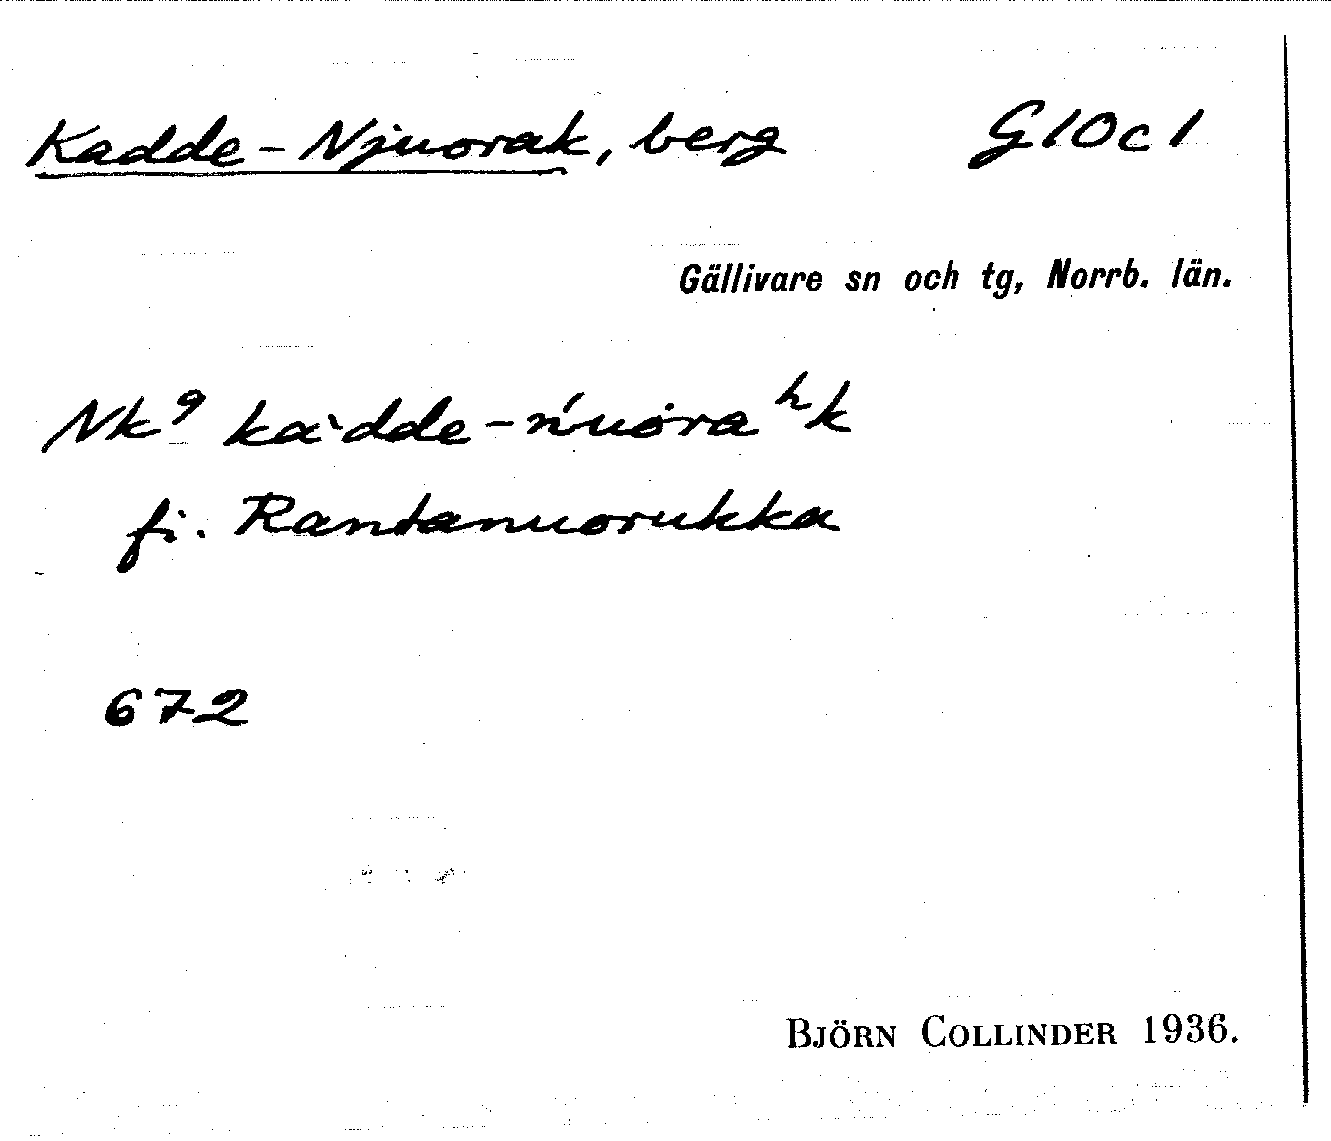 Kadde-Njuorak, berg G10c1
Gällivare sn och tg, Norrb. län.
Nk⁹ kaˋdde-ńuȯraʰk
fi. Rantanuorukka
672
BJÖRN COLLINDER 1936.